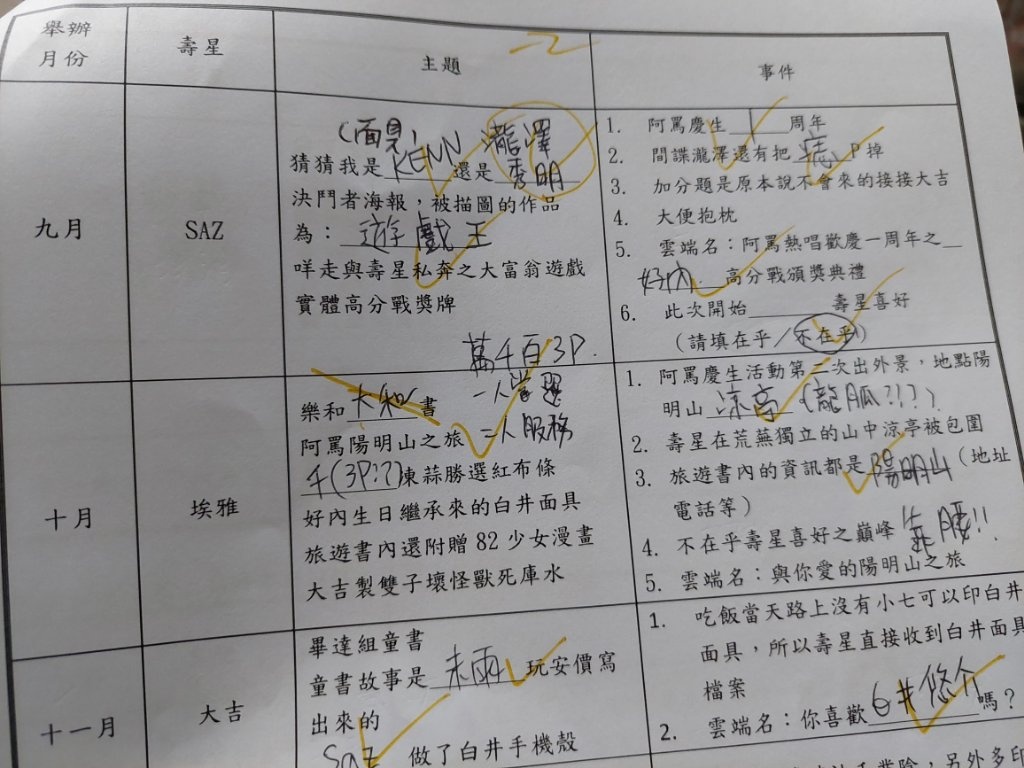 舉辦
月份
壽星
主題
事件
九月
SAZ
(面具)
猜猜我是KENN還是瀧澤秀明
決鬥者海報，被描圖的作品
為：遊戲王
咩走與壽星私奔之大富翁遊戲
實體高分戰獎牌
1. 阿罵慶生 1 周年
2. 間諜瀧澤還有把痣P掉
3. 加分題是原本說不會來的接接大吉
4. 大便抱枕
5. 雲端名：阿罵熱唱歡慶一周年之
好內高分戰頒獎典禮
6. 此次開始______壽星喜好
(請填在乎／不在乎)
十月
埃雅
萬千百3P.
一人掌鏡
二人服務
樂和大和書
阿罵陽明山之旅
千(3P!?)凍蒜勝選紅布條
好內生日繼承來的白井面具
旅遊書內還附贈82少女漫畫
大吉製雙子壞怪獸死庫水
1. 阿罵慶生活動第二次出外景，地點陽
明山涼亭(龍胍???)
2. 壽星在荒蕪獨立的山中涼亭被包圍
3. 旅遊書內的資訊都是陽明山(地址
電話等)
4. 不在乎壽星喜好之巔峰 靠腰!!
5. 雲端名：與你愛的陽明山之旅
十一月
大吉
畢達組童書
童書故事是未雨玩安價寫
出來的
Saz 做了白井手機殼
1. 吃飯當天路上沒有小七可以印白井
面具，所以壽星直接收到白井面具
檔案
2. 雲端名：你喜歡白井悠介嗎？
另外多印